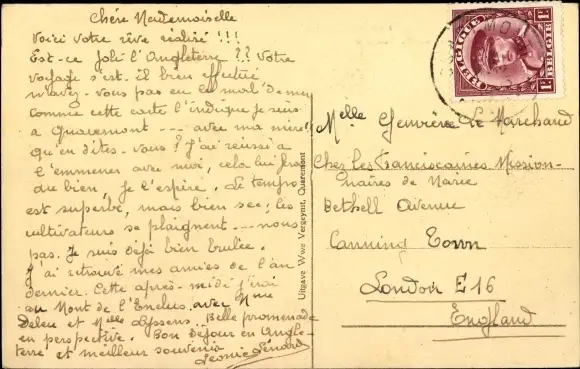 Chère Mademoiselle
Voici votre rêve réalisé !!!
Est-ce joli l'Angleterre ?? Votre
voyage s'est-il bien effectué
n'avez-vous pas eu le mal de mer
comme cette carte l'indique je suis
à Quaremont --- avec ma mère !
Qu'en dites-vous ? J'ai réussi à
l'emmener avec moi, cela lui fera
du bien je l'espère. Le temps
est superbe, mais bien sec; les
cultivateurs se plaignent --- nous
pas. Je suis déjà bien brulée.
J'ai retrouvé mes amies de l'an
dernier. Cette après-midi j'irai
au Mont de l'Enclus avec Mme
Deleu et Melle Belle promenade
en perspective. Bon séjour en Angle-
terre et meilleur souvenir
Léonie Lénard
Uitgave Wwe Vergeynst, Quaremont
BELGIQUE BELGIE
1F 1F
Melle Le Marchand
Chez Les Franciscaines Mission-
naires de Marie
Bethell Avenue
Canning Town
London E16
England